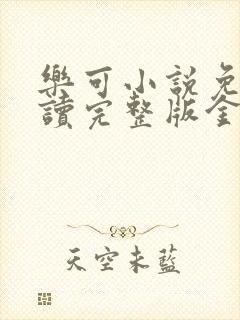 樂可小說免
讀完整版全
天空未藍